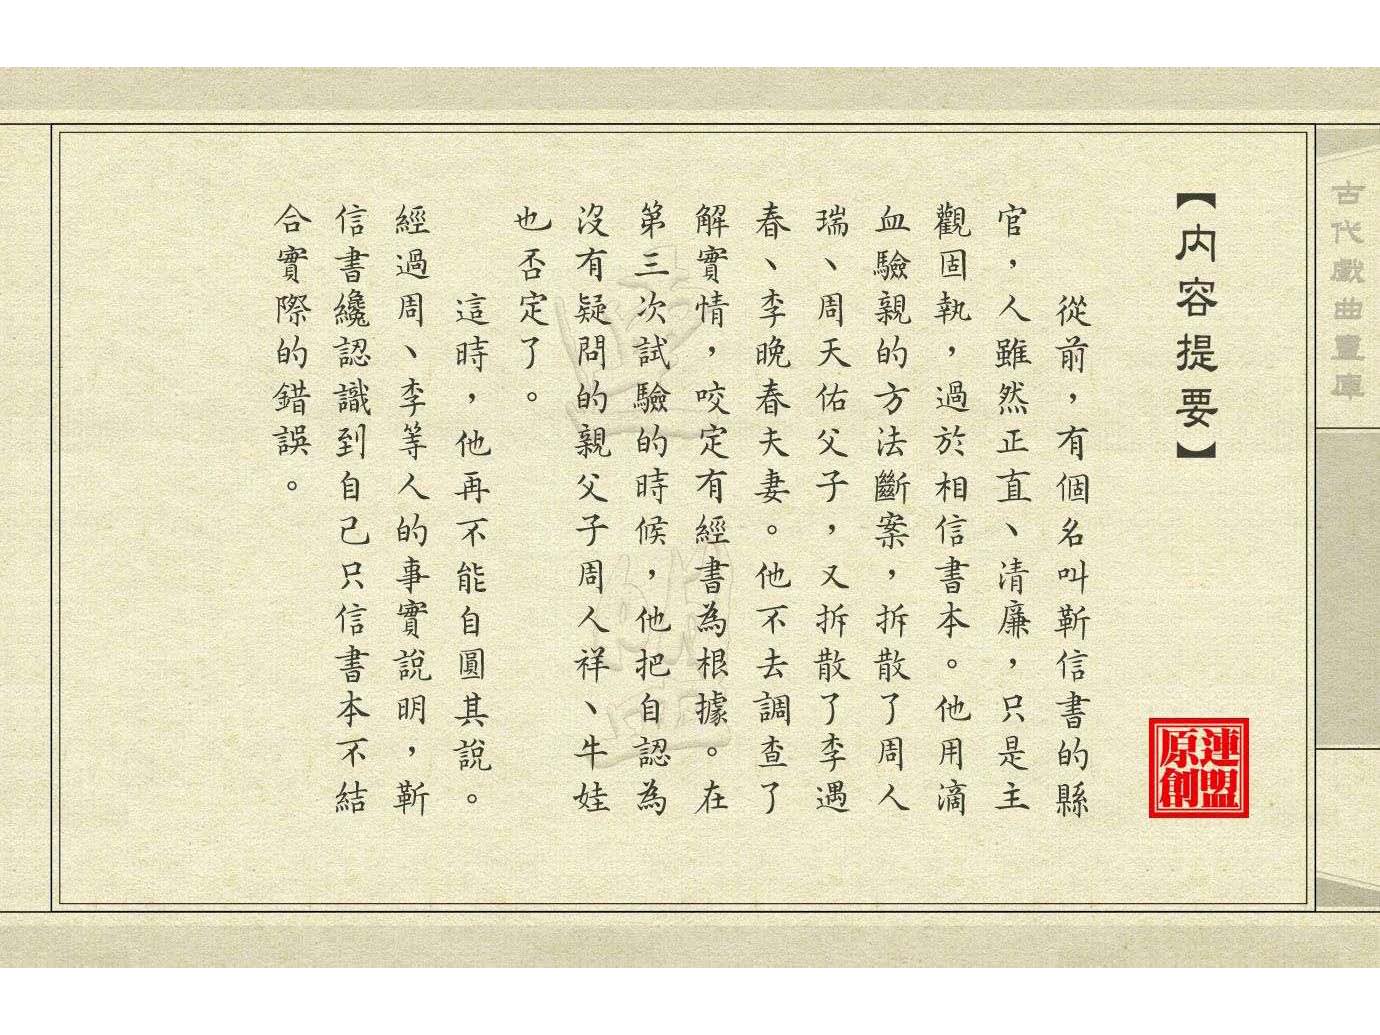 古代戲曲畫庫
【内容提要】
從前，有個名叫靳信書的縣
官，人雖然正直、清廉，只是主
觀固執，過於相信書本。他用滴
血驗親的方法斷案，拆散了周人
瑞、周天佑父子，又拆散了李遇
春、李晚春夫妻。他不去調查了
解實情，咬定有經書為根據。在
第三次試驗的時候，他把自認為
沒有疑問的親父子周人祥、牛娃
也否定了。
這時，他再不能自圓其說。
經過周、李等人的事實說明，靳
信書纔認識到自己只信書本不結
合實際的錯誤。
連盟
原創